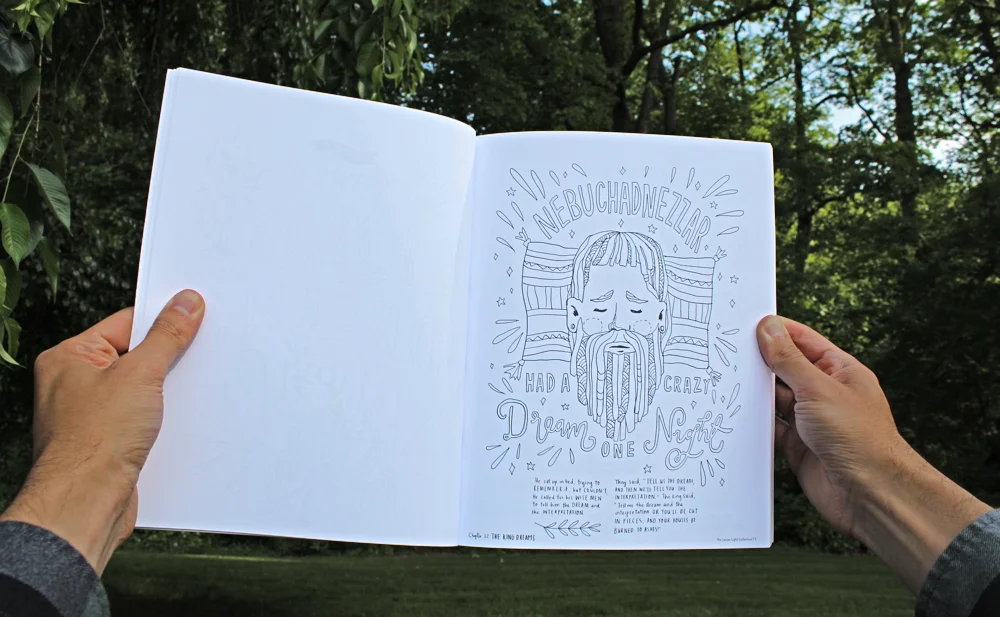 NEBUCHADNEZZAR
HAD A CRAZY
Dream ONE Night
He sat up in bed, trying to
REMEMBER it, but COULDN'T.
He called for his WISE MEN
to tell him the DREAM and
the INTERPRETATION.
They said, "TELL US THE DREAM,
AND THEN WE'LL TELL YOU THE
INTERPRETATION." The king said,
"Tell me the dream and the
interpretation OR YOU'LL BE CUT
IN PIECES, AND YOUR HOUSES BE
BURNED TO ASHES."
THE KING DREAMS